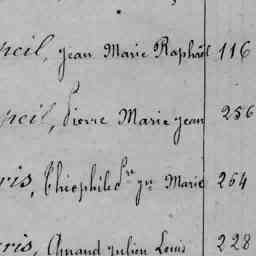 reil, Jean Marie Raphaël 116
reil, Pierre Marie Jean 256
ris, Théophile Marie 264
ris, Amand Julien Louis 228